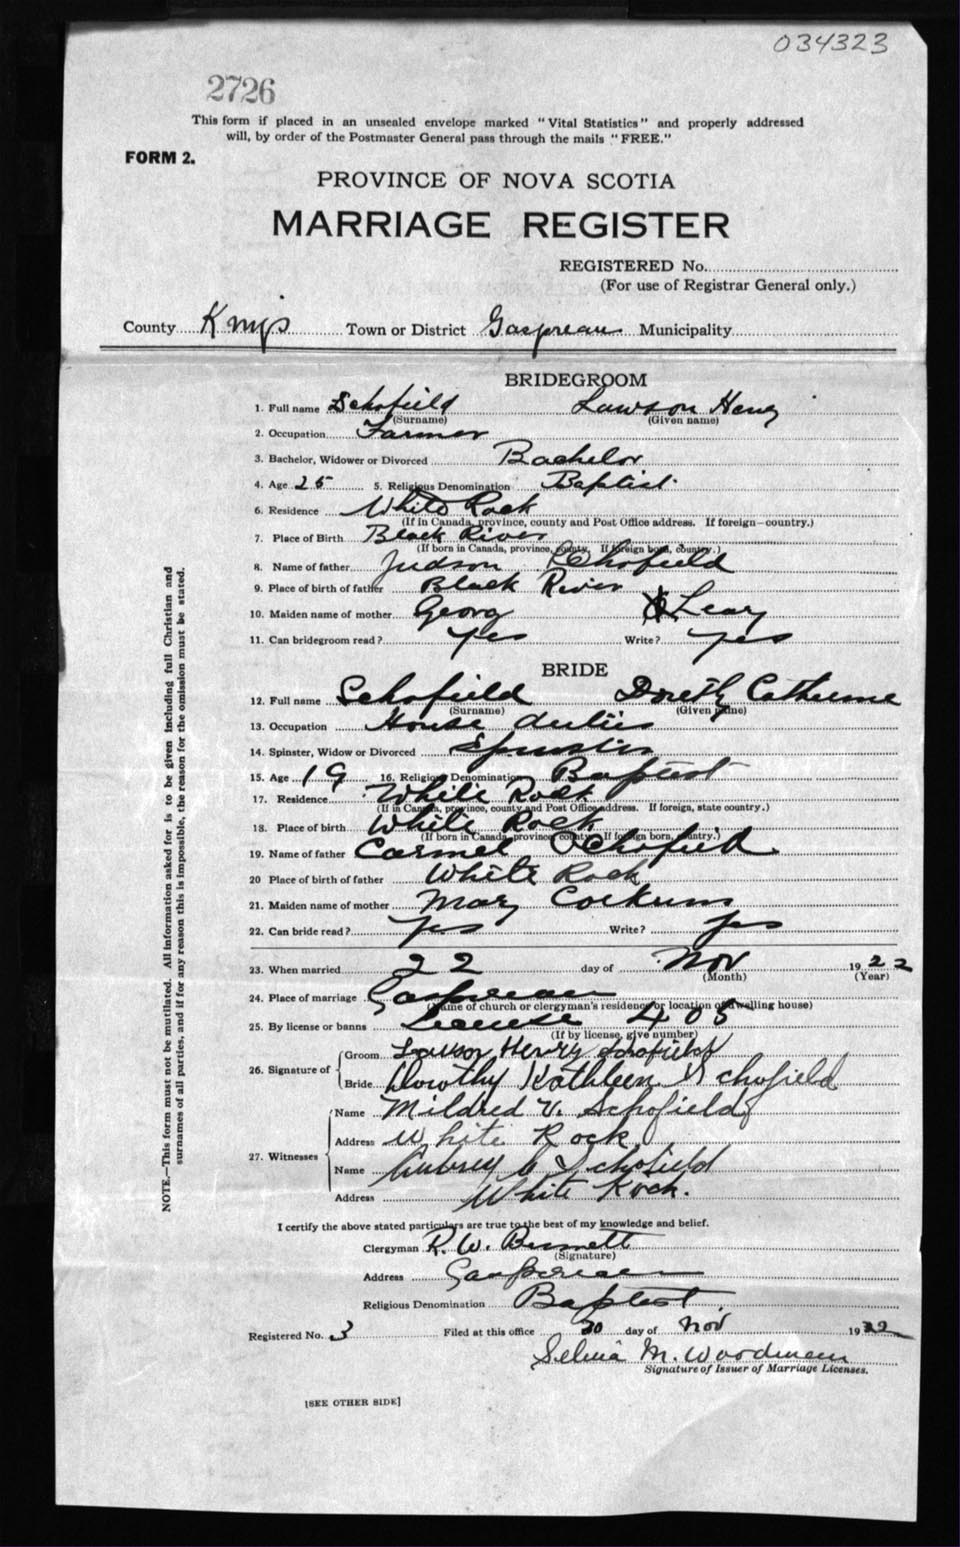 034323
2726
This form if placed in an unsealed envelope marked "Vital Statistics" and properly addressed
will, by order of the Postmaster General pass through the mails "FREE."
FORM 2.
PROVINCE OF NOVA SCOTIA
MARRIAGE REGISTER
REGISTERED No.
(For use of Registrar General only.)
County Kings Town or District Gaspreau Municipality
BRIDEGROOM
1. Full name Schofield Lawson Henry
(Surname) (Given name)
2. Occupation Farmer
3. Bachelor, Widower or Divorced Bachelor
4. Age 25 5. Religious Denomination Baptist
6. Residence White Rock
(If in Canada, province, county and Post Office address. If foreign—country.)
7. Place of Birth Black River
(If born in Canada, province, county. If foreign born, country.)
8. Name of father Judson Schofield
9. Place of birth of father Black River
10. Maiden name of mother Georg Leary
11. Can bridegroom read? yes Write? yes
BRIDE
12. Full name Schofield Doroth Catherine
(Surname) (Given name)
13. Occupation House duties
14. Spinster, Widow or Divorced Spinster
15. Age 19 16. Religious Denomination Baptist
17. Residence White Rock
(If in Canada, province, county and Post Office address. If foreign, state country.)
18. Place of birth White Rock
(If born in Canada, province, county. If foreign born, country.)
19. Name of father Carmel Schofield
20 Place of birth of father White Rock
21. Maiden name of mother Mary Corkum
22. Can bride read? Yes Write? yes
23. When married 22 day of Nov 1922
(Month) (Year)
24. Place of marriage Gaspereau
(Name of church or clergyman's residence or location of dwelling house)
25. By license or banns License 405
(If by license, give number)
26. Signature of
Groom Lawson Henry Schofield
Bride Dorothy Kathleen Schofield
27. Witnesses
Name Mildred V. Schofield
Address White Rock
Name Aubrey C Schofield
Address White Rock.
I certify the above stated particulars are true to the best of my knowledge and belief.
Clergyman R. W. Bennett
(Signature)
Address Gaspereau
Religious Denomination Baptist.
Registered No. 3 Filed at this office 30 day of Nov 1922
Selina M. Woodman
Signature of Issuer of Marriage Licenses.
[SEE OTHER SIDE]
NOTE.—This form must not be mutilated. All information asked for is to be given including full Christian and
surnames of all parties, and if for any reason this is impossible, the reason for the omission must be stated.